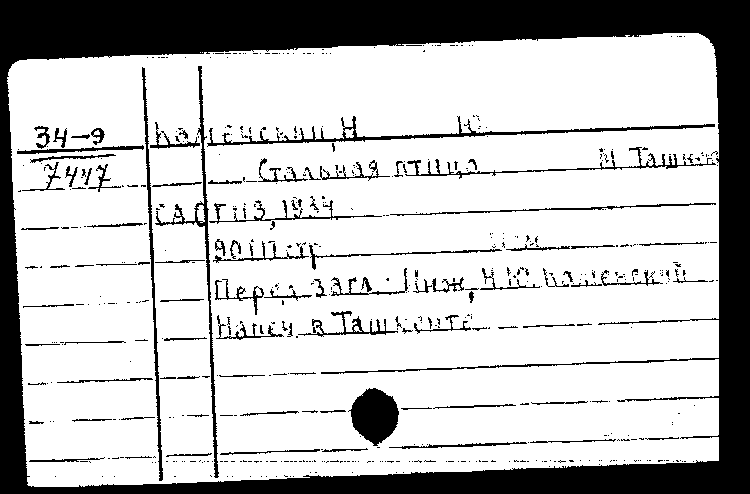 34-9
7447
Каменский, Н. Ю.
Стальная птица. М. Ташкен
САОГИЗ, 1934
90 стр. см
Перед загл.: Инж. Н.Ю. Каменский
Напеч. в Ташкенте